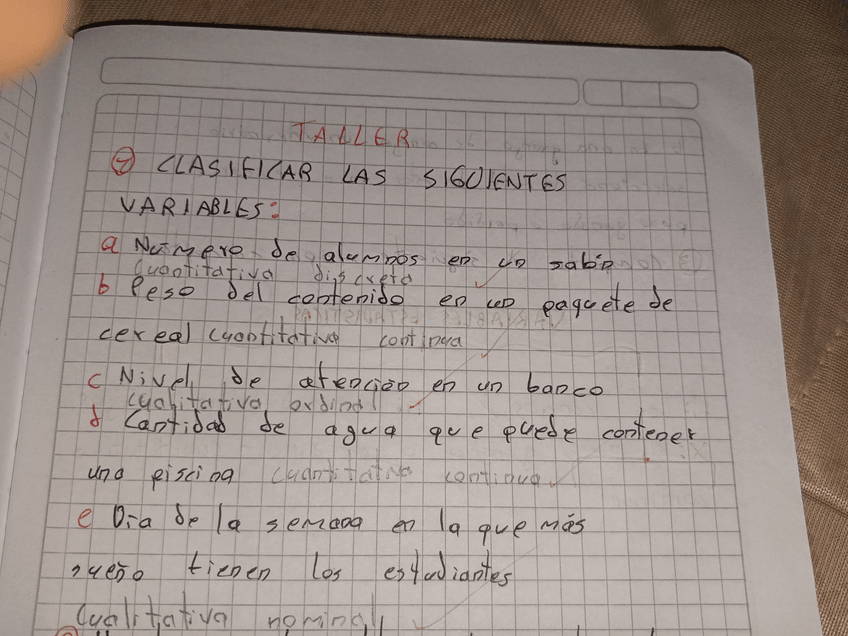 TALLER
⑦ CLASIFICAR LAS SIGUIENTES
VARIABLES:
a Número de alumnos en un salón
Cuantitativa discreta
b Peso del contenido en un paquete de
cereal cuantitativa continua
c Nivel de atención en un banco
cualitativa ordinal
d Cantidad de agua que puede contener
una piscina cuantitativa continua
e Día de la semana en la que más
sueño tienen los estudiantes
Cualitativa nominal